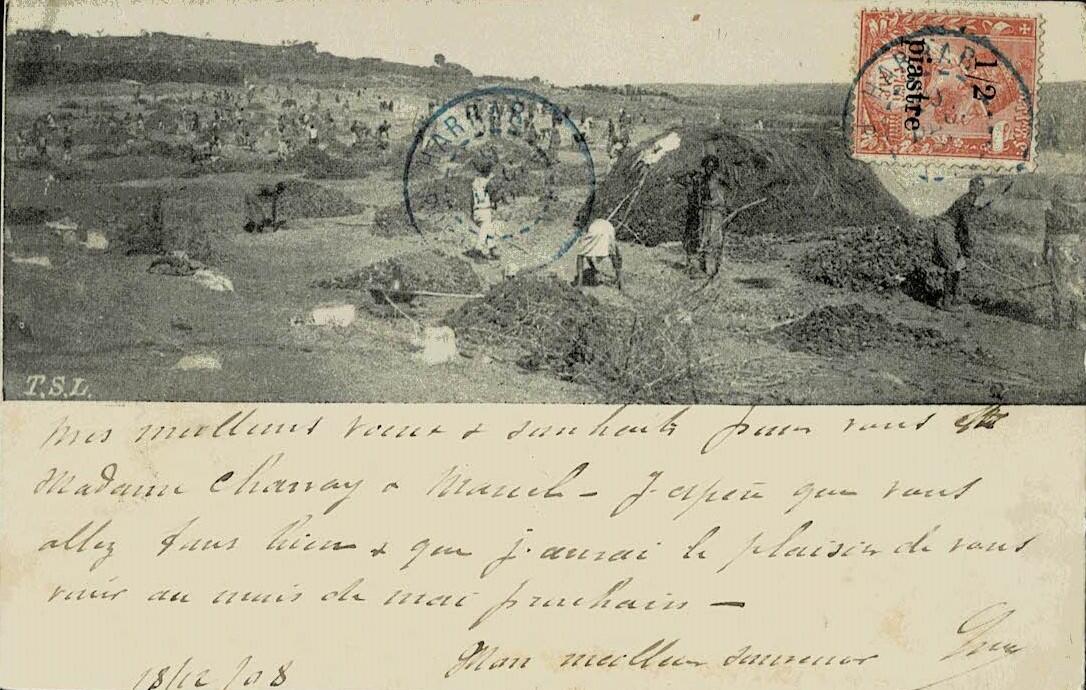 HARRAR
HARRAR
1/2
piastre
T.S.L.
Mes meilleurs voeux & souhaits pour vous
Madame Charray & Marcel - J'espère que vous
allez tous bien & que j'aurai le plaisir de vous
voir au mois de mai prochain -
Mon meilleur souvenir
18/12/08